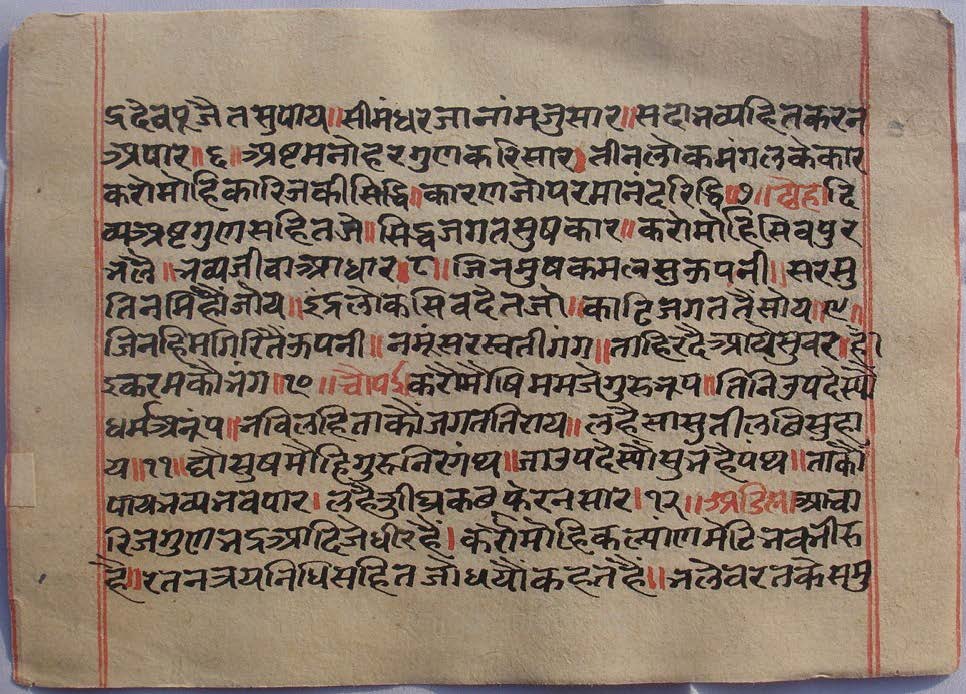 द्रदेव पूजै तसु पाय॥ सीमंधर जानां मजुसार॥ सदा भव्यहित करन
अपार॥६॥ अष्ट मनोहर गुण करि सार। तीन लोक मंगल के कार
करो मोहि कारिज की सिद्धि॥ कारण जो परमानंद रिद्धि॥७॥ दोहा॥ दि
व्य अष्ट गुण सहित जे॥ सिद्ध जगत सुषकार॥ करो मोहि सिवपुर
भलै॥ भव्य जीवा आधार॥८॥ जिनमुष कमल सु ऊपनी॥ सरसु
ति नमिहौं जोय॥ इंद्रलोक सिव दैत जो॥ काटि जगत तै सोय॥९॥
जिन हिमगिरि तै ऊपनी॥ नमूं सरस्वती गंग॥ ताहि रदै आये सुवर॥ है
इ करम कौ भंग॥१०॥ चौपई॥ करो मोषि मम जे गुरु भूप॥ तिनि उपदेस्यौ
धर्म अनूप॥ भवि लहि ताकौ जगत तिराय॥ लहै सासुती लब्धि सुहा
य॥११॥ द्यौ सुष मोहि गुरु निरगंथ॥ जा उपदेस्यौ सुभ है पंथ॥ ताकौं
पाय भव्य भव पार। लहै शीघ्र कब फेर न सार।१२॥ अडिल॥ आचा
रिज गुणभद्र आदि जे धीर हैं। करो मोहि कल्याण मेटि भव भीरु
है॥ रतनत्रय निधि सहित जो धर्यौ कहत हैं॥ भले वरत के समु